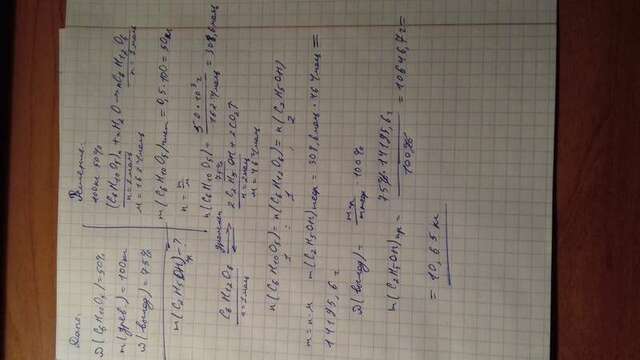 Дано:
ω(C6H10O5)=50%
m(древ.)=100кг
ω(выход)=75%
m(C2H5OH)пр-?
Решение:
100кг 50%
(C6H10O5)n + nH2O → nC6H12O6
n=1моль n=1моль
M=162г/моль
m(C6H10O5)чист=0,5·100=50кг
n=m/M
n(C6H10O5)=50·10³г/162г/моль=308,6моль
75%
C6H12O6 → 2C2H5OH+2CO2↑
n=1моль n=2моль
M=46г/моль
n(C6H10O5)=n(C6H12O6)=n(C2H5OH)
1 : 1 : 2
m=n·M m(C2H5OH)теор=308,6моль·46г/моль=
14195,6г
ω(выход)=mпр/mтеор·100%
m(C2H5OH)пр=75%·14195,6г/100%=10646,7г=
=10,65кг